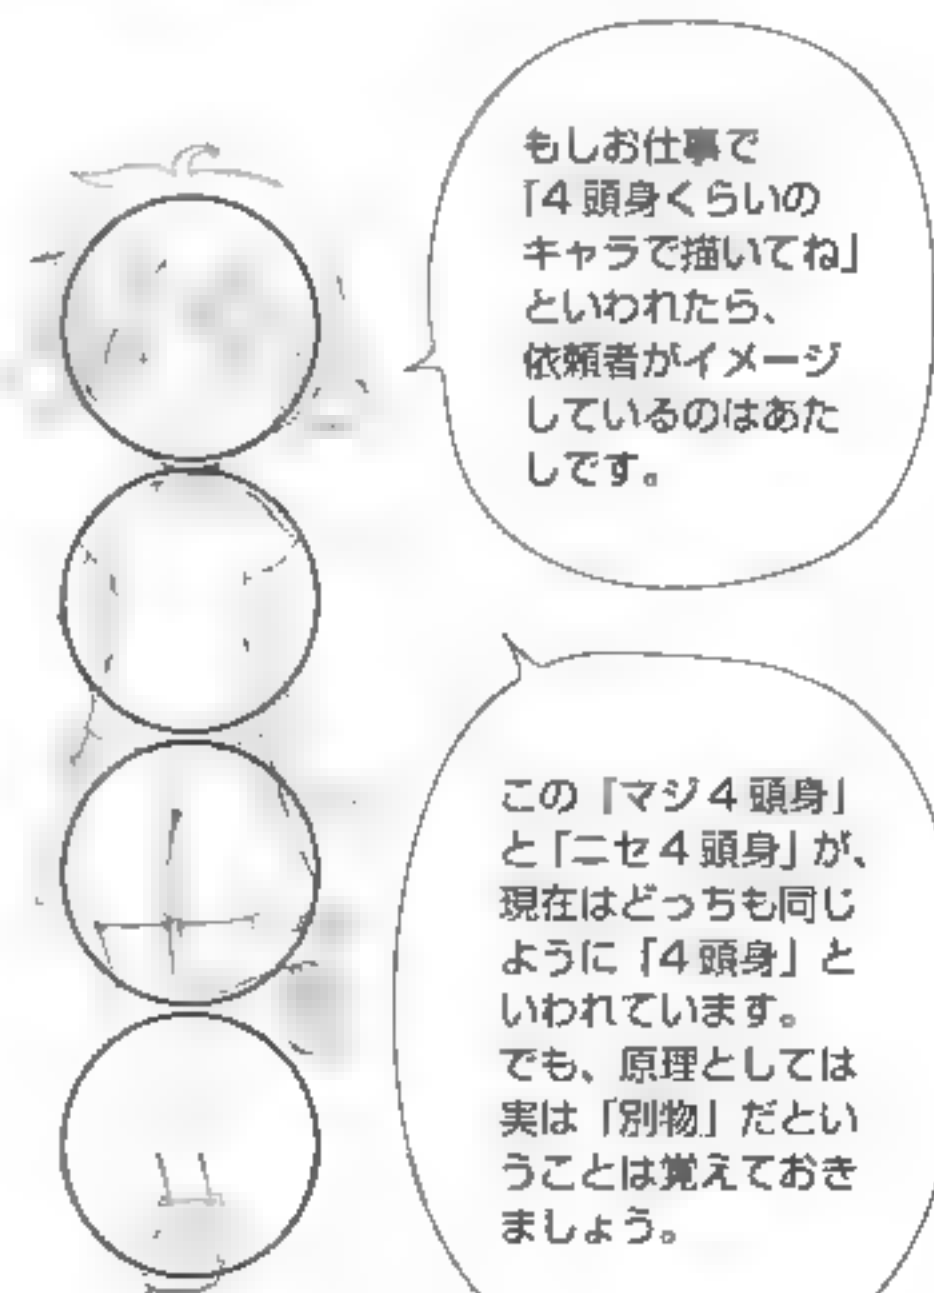 もしお仕事で
「4頭身くらいの
キャラで描いてね」
といわれたら、
依頼者がイメージ
しているのはあた
しです。
この「マジ4頭身」
と「ニセ4頭身」が、
現在はどっちも同じ
ように「4頭身」と
いわれています。
でも、原理としては
実は「別物」だとい
うことは覚えておき
ましょう。